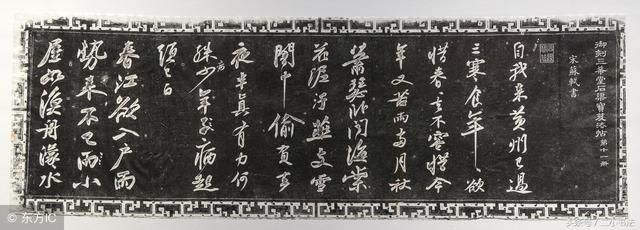 御刻三希堂石渠寶笈法帖 第十一冊
宋蘇軾書
自我來黃州已過
三寒食年々欲
惜春々去不容惜今
年又苦雨兩月秋
蕭瑟臥聞海棠
花泥汙燕支雪
闇中偷負去
夜半真有力何
殊病少年子病起
頭已白
春江欲入戶雨
勢來不已雨小
屋如漁舟濛々水
© 东方IC